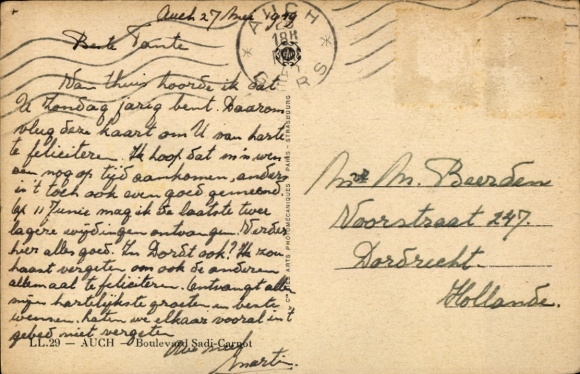 Auch 27 Mei 1949
Beste Tante
Van thuis hoorde ik dat
U Zondag jarig bent. Daarom
vlug deze kaart om U van harte
te feliciteren. Ik hoop dat m'n wen
sen nog op tijd aankomen, anders
is 't toch ook even goed gemeend.
Op 11 Junie mag ik de laatste twee
lagere wijdingen ontvangen. Verder
hier alles goed. In Dordt ook? Ik zou
haast vergeten om ook de anderen
allemaal te feliciteren. Ontvangt allen
mijn hartelijkste groeten en beste
wensen. Laten we elkaar vooral in 't
gebed niet vergeten
LL.29 — AUCH — Boulevard Sadi-Carnot
Uw neef
Martin
AUCH
18H
GERS
CIE DES ARTS PHOTOMÉCANIQUES PARIS - STRASBOURG
M. Beerden
Voorstraat 247.
Dordrecht.
Hollande.